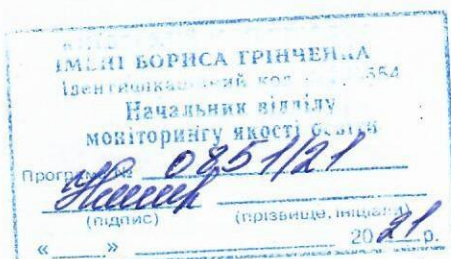 ІМЕНІ БОРИСА ГРІНЧЕНКА
Ідентифікаційний код 554
Начальник відділу
моніторингу якості освіти
Програма № 0851/21
(підпис) (прізвище, ініціали)
« » 2021 р.